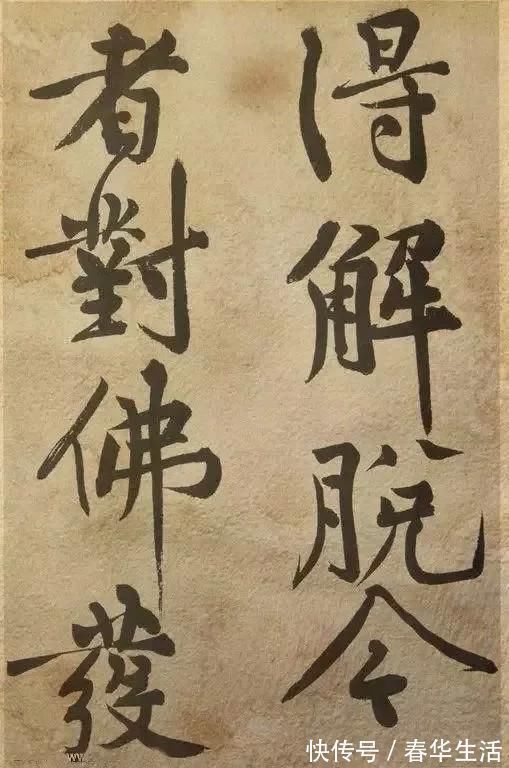 得解脫今
者對佛發
快传号 / 春华生活